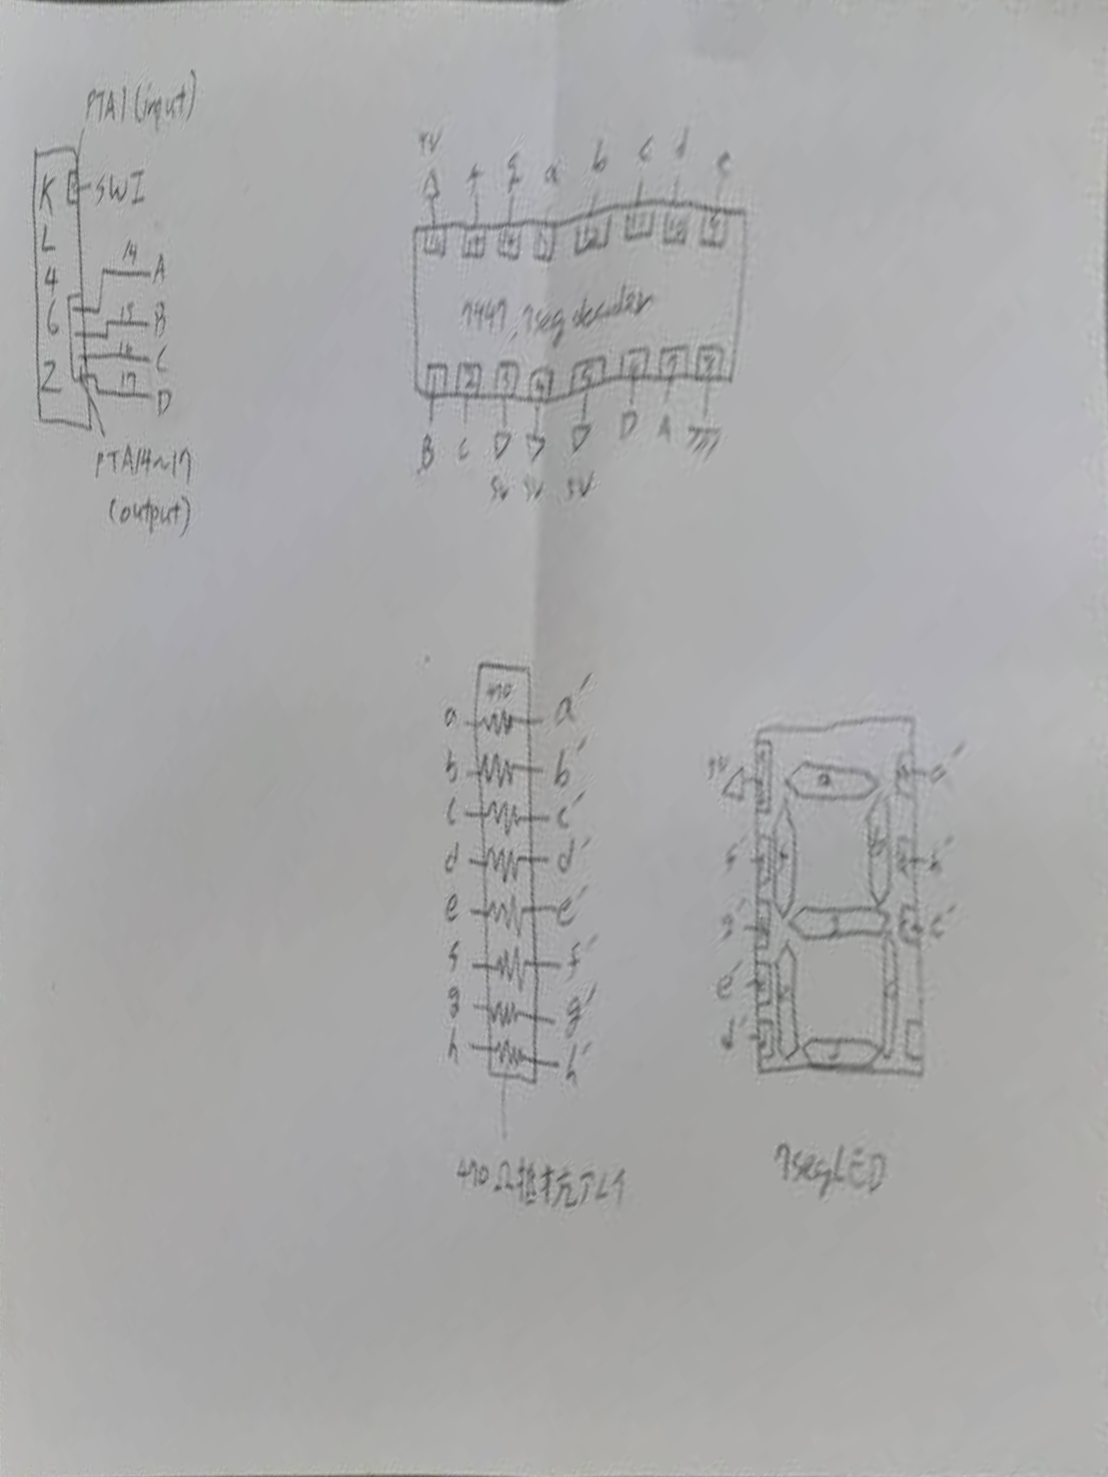 PTA1 (input)
K
L
4
6
Z
SW1
14 A
15 B
16 C
17 D
PTA14~17
(output)
5V
f g a b c d e
16 15 14 13 12 11 10 9
7447, 7seg decoder
1 2 3 4 5 6 7 8
B C D A
5V 5V 5V
470
a a′
b b′
c c′
d d′
e e′
f f′
g g′
h h′
470Ω抵抗アレイ
5V a a′
f′ b′
g′ c′
e′
d′
7segLED